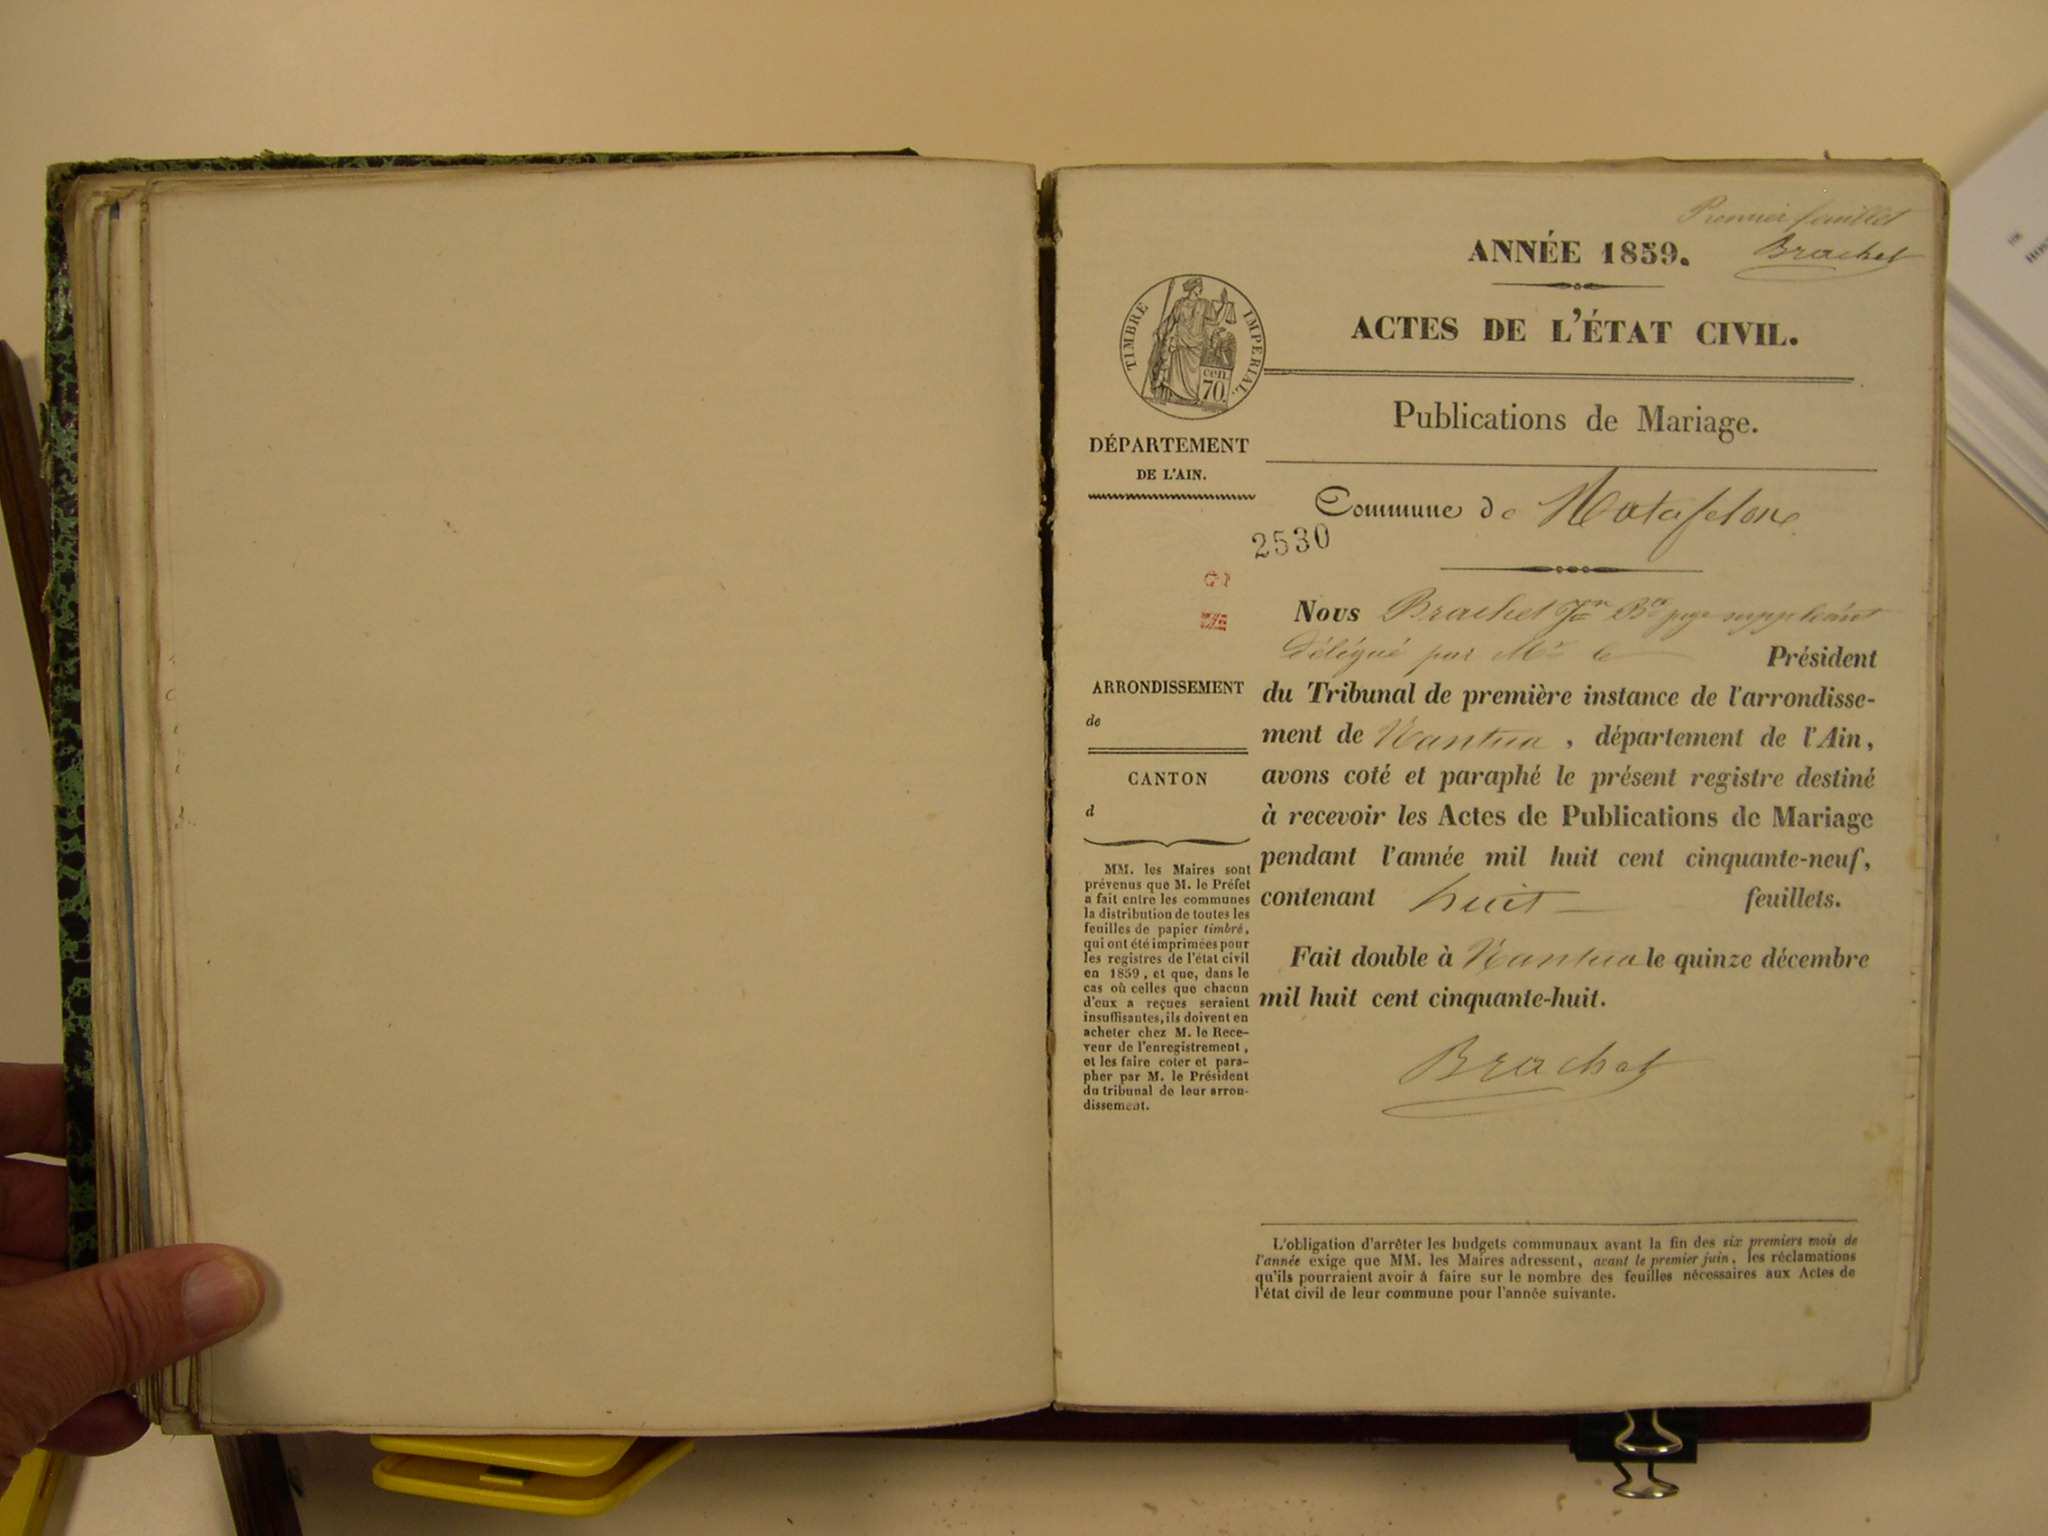 Premier feuillet
Brachet
ANNÉE 1859.
ACTES DE L'ÉTAT CIVIL.
TIMBRE IMPERIAL.
cen.
70.
Publications de Mariage.
DÉPARTEMENT
DE L'AIN.
Commune de Matafelon
2530
Nous Brachet Jn Bte juge suppléant
délégué par Mr le Président
du Tribunal de première instance de l'arrondisse-
ment de Nantua, département de l'Ain,
avons coté et paraphé le présent registre destiné
à recevoir les Actes de Publications de Mariage
pendant l'année mil huit cent cinquante-neuf,
contenant huit feuillets.
Fait double à Nantua le quinze décembre
mil huit cent cinquante-huit.
Brachet
ARRONDISSEMENT
de
CANTON
d
MM. les Maires sont
prévenus que M. le Préfet
a fait entre les communes
la distribution de toutes les
feuilles de papier timbré,
qui ont été imprimées pour
les registres de l'état civil
en 1859, et que, dans le
cas où celles que chacun
d'eux a reçues seraient
insuffisantes, ils doivent en
acheter chez M. le Rece-
veur de l'enregistrement,
et les faire coter et para-
pher par M. le Président
du tribunal de leur arron-
dissement.
L'obligation d'arrêter les budgets communaux avant la fin des six premiers mois de
l'année exige que MM. les Maires adressent, avant le premier juin, les réclamations
qu'ils pourraient avoir à faire sur le nombre des feuilles nécessaires aux Actes de
l'état civil de leur commune pour l'année suivante.